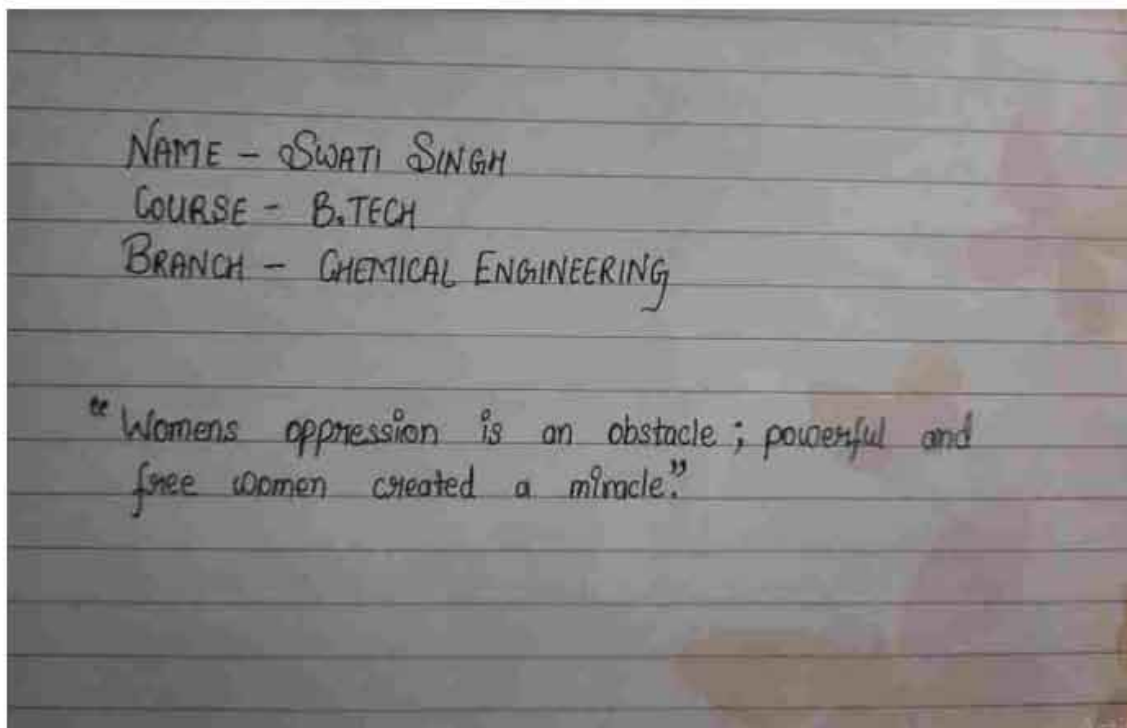 NAME - SWATI SINGH
COURSE - B.TECH
BRANCH - CHEMICAL ENGINEERING
"Womens oppression is an obstacle; powerful and
free women created a miracle."